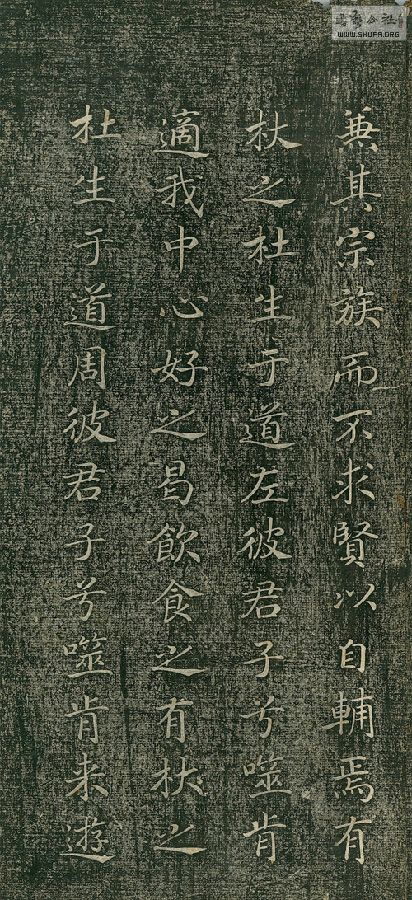 兼其宗族而不求賢以自輔焉有
杕之杜生于道左彼君子兮噬肯
適我中心好之曷飲食之有杕之
杜生于道周彼君子兮噬肯来遊
WWW.SHUFA.ORG